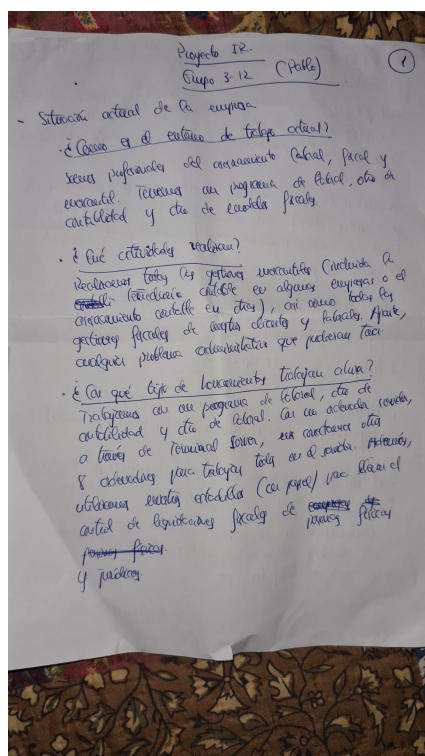 Proyecto IR.
Grupo 3-12 (Pablo)
1
- Situación actual de la empresa
· ¿Cómo es el entorno de trabajo actual?
Somos profesionales del asesoramiento laboral, fiscal y
mercantil. Tenemos un programa de laboral, otro de
contabilidad y otro de modelos fiscales.
· ¿Qué actividades realizan?
Realizamos todas las gestiones mercantiles (incluida la
teneduría contable en algunas empresas o el
asesoramiento contable en otras), así como todas las
gestiones fiscales de nuestros clientes y laborales. Aparte,
cualquier problema administrativo que pudieran
· ¿Con qué tipo de herramientos trabajan ahora?
Trabajamos con un programa de laboral, otro de
contabilidad y otro de laboral. Con un ordenador servidor,
a través de Terminal Server, nos conectamos otros
8 ordenadores para trabajar todos en el mismo. Además,
utilizamos nuestros estadillos (con papel) para llevar el
control de liquidaciones fiscales de personas físicas
y jurídicas.